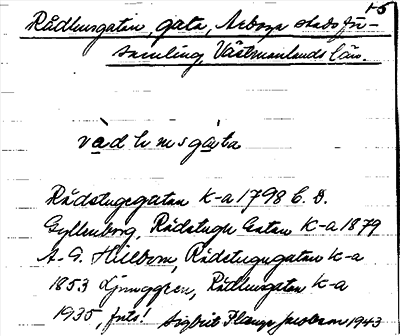 15
Rådhusgatan, gata, Arboga stadsför-
samling, Västmanlands län.
rådhusgàta
Rådstugegatan K-a 1798 C. D.
Gyllenborg, Rådstugu Gatan K-a 1879
A. G. Hillbom, Rådstugugatan K-a
1853 Ljunggren, Rådhusgatan K-a
1935, foto! Sigbrit Plænge Jacobson 1943